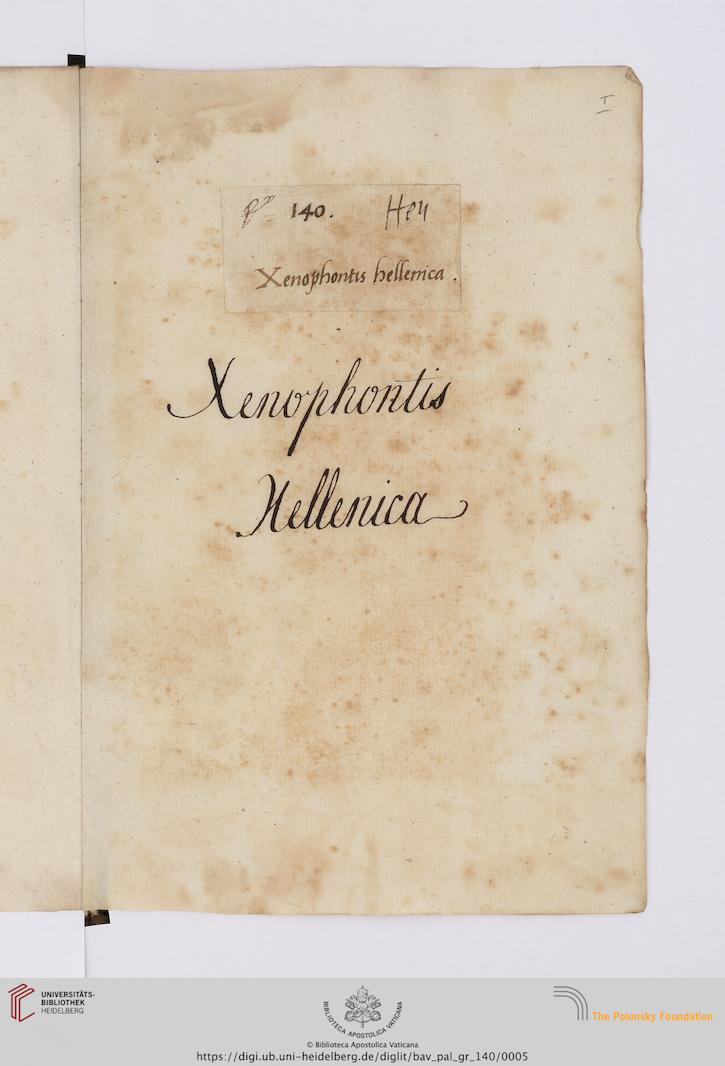 I
140. Hey
Xenophontis hellenica.
Xenophontis
Hellenica
UNIVERSITÄTS-
BIBLIOTHEK
HEIDELBERG
BIBLIOTECA APOSTOLICA VATICANA
The Polonsky Foundation
© Biblioteca Apostolica Vaticana
https://digi.ub.uni-heidelberg.de/diglit/bav_pal_gr_140/0005